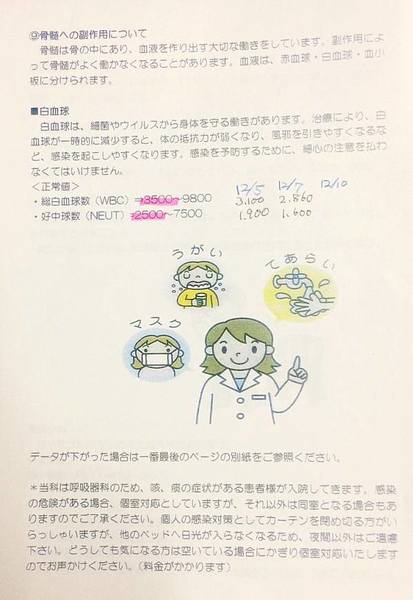 ⑨骨髄への副作用について
骨髄は骨の中にあり、血液を作り出す大切な働きをしています。副作用によ
って骨髄がよく働かなくなることがあります。血液は、赤血球・白血球・血小
板に分けられます。
■白血球
白血球は、細菌やウイルスから身体を守る働きがあります。治療により、白
血球が一時的に減少すると、体の抵抗力が弱くなり、風邪を引きやすくなるな
ど、感染を起こしやすくなります。感染を予防するために、細心の注意を払わ
なくてはいけません。
<正常値> 12/5 12/7 12/10
・総白血球数（WBC）⇒3500~9800 3.100 2.860
・好中球数（NEUT）⇒2500~7500 1.900 1.600
うがい
てあらい
マスク
データが下がった場合は一番最後のページの別紙をご参照ください。
＊当科は呼吸器科のため、咳、痰の症状がある患者様が入院してきます。感染
の危険がある場合、個室対応としていますが、それ以外は同室となる場合もあ
りますのでご了承ください。個人の感染対策としてカーテンを閉め切る方がい
らっしゃいますが、他のベッドへ日光が入らなくなるため、夜間以外はご遠慮
下さい。どうしても気になる方は空いている場合にかぎり個室対応いたします
のでお声かけください。（料金がかかります）